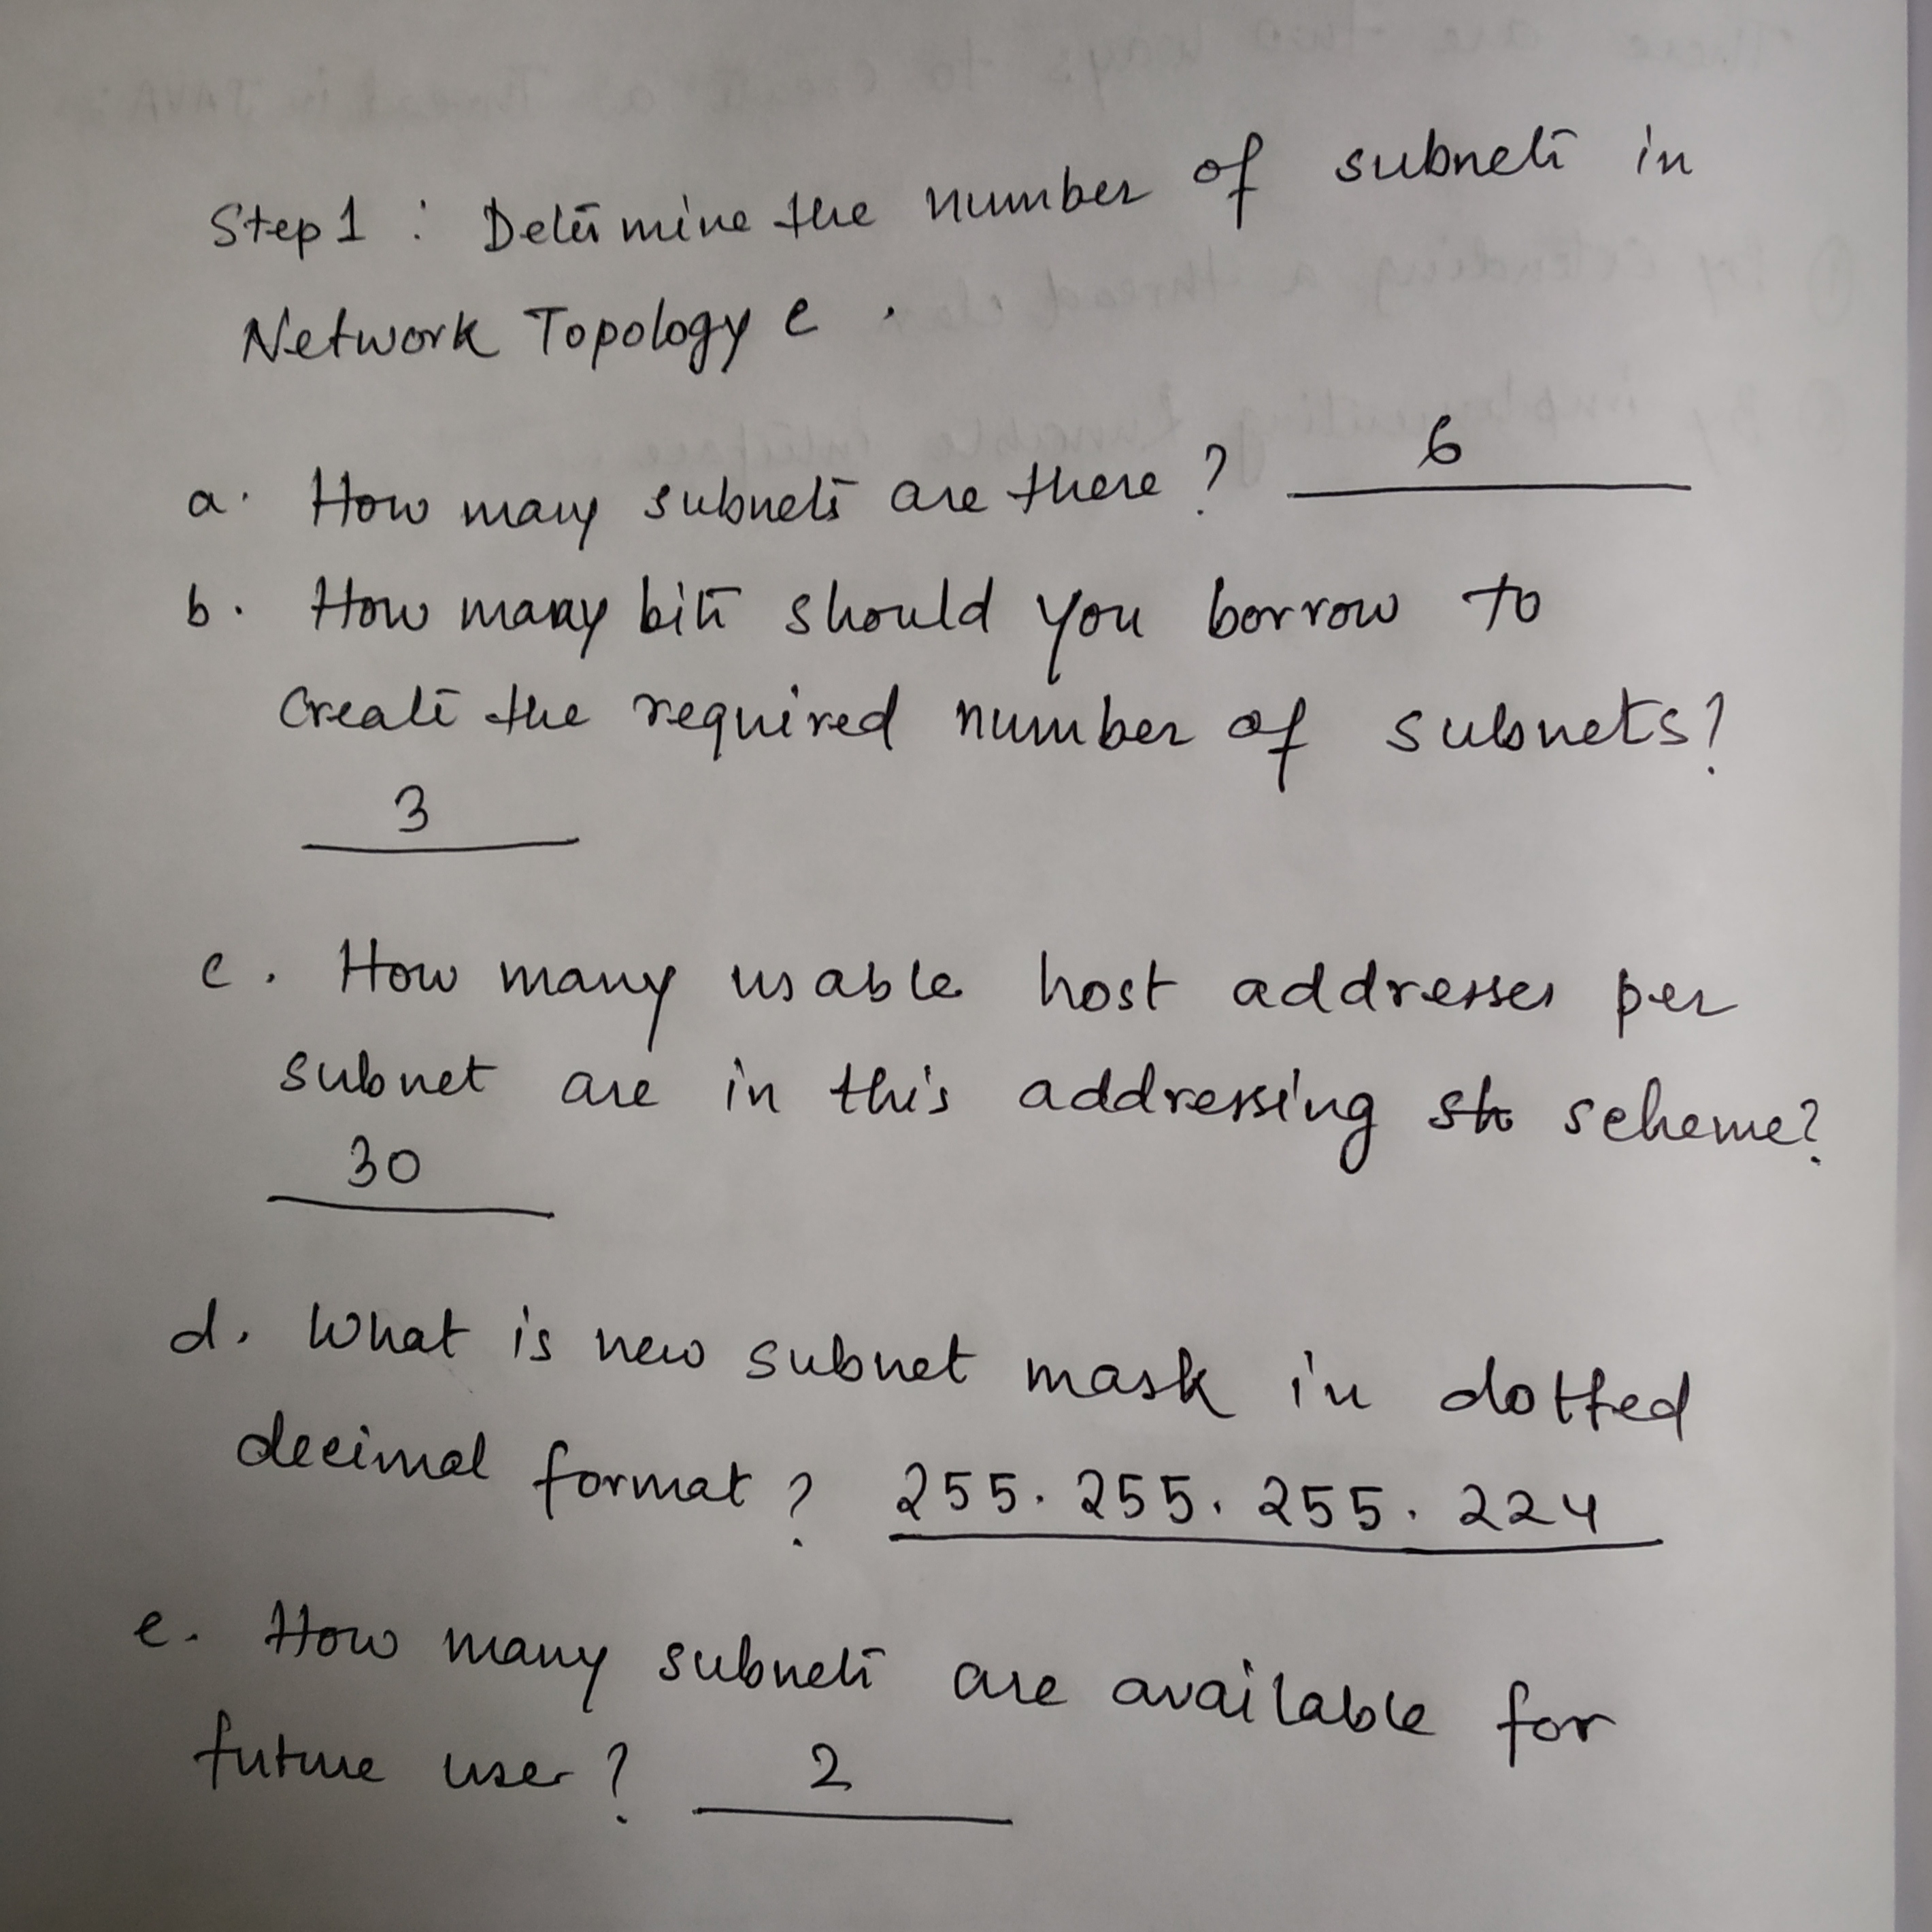 Step 1 : Determine the number of subnets in
Network Topology C .
a. How many subnets are there ? 6
b. How many bits should you borrow to
Create the required number of subnets?
3
c. How many usable host addresses per
subnet are in this addressing scheme?
30
d. What is new subnet mask in dotted
decimal format ? 255. 255. 255. 224
e. How many subnets are available for
future user ? 2